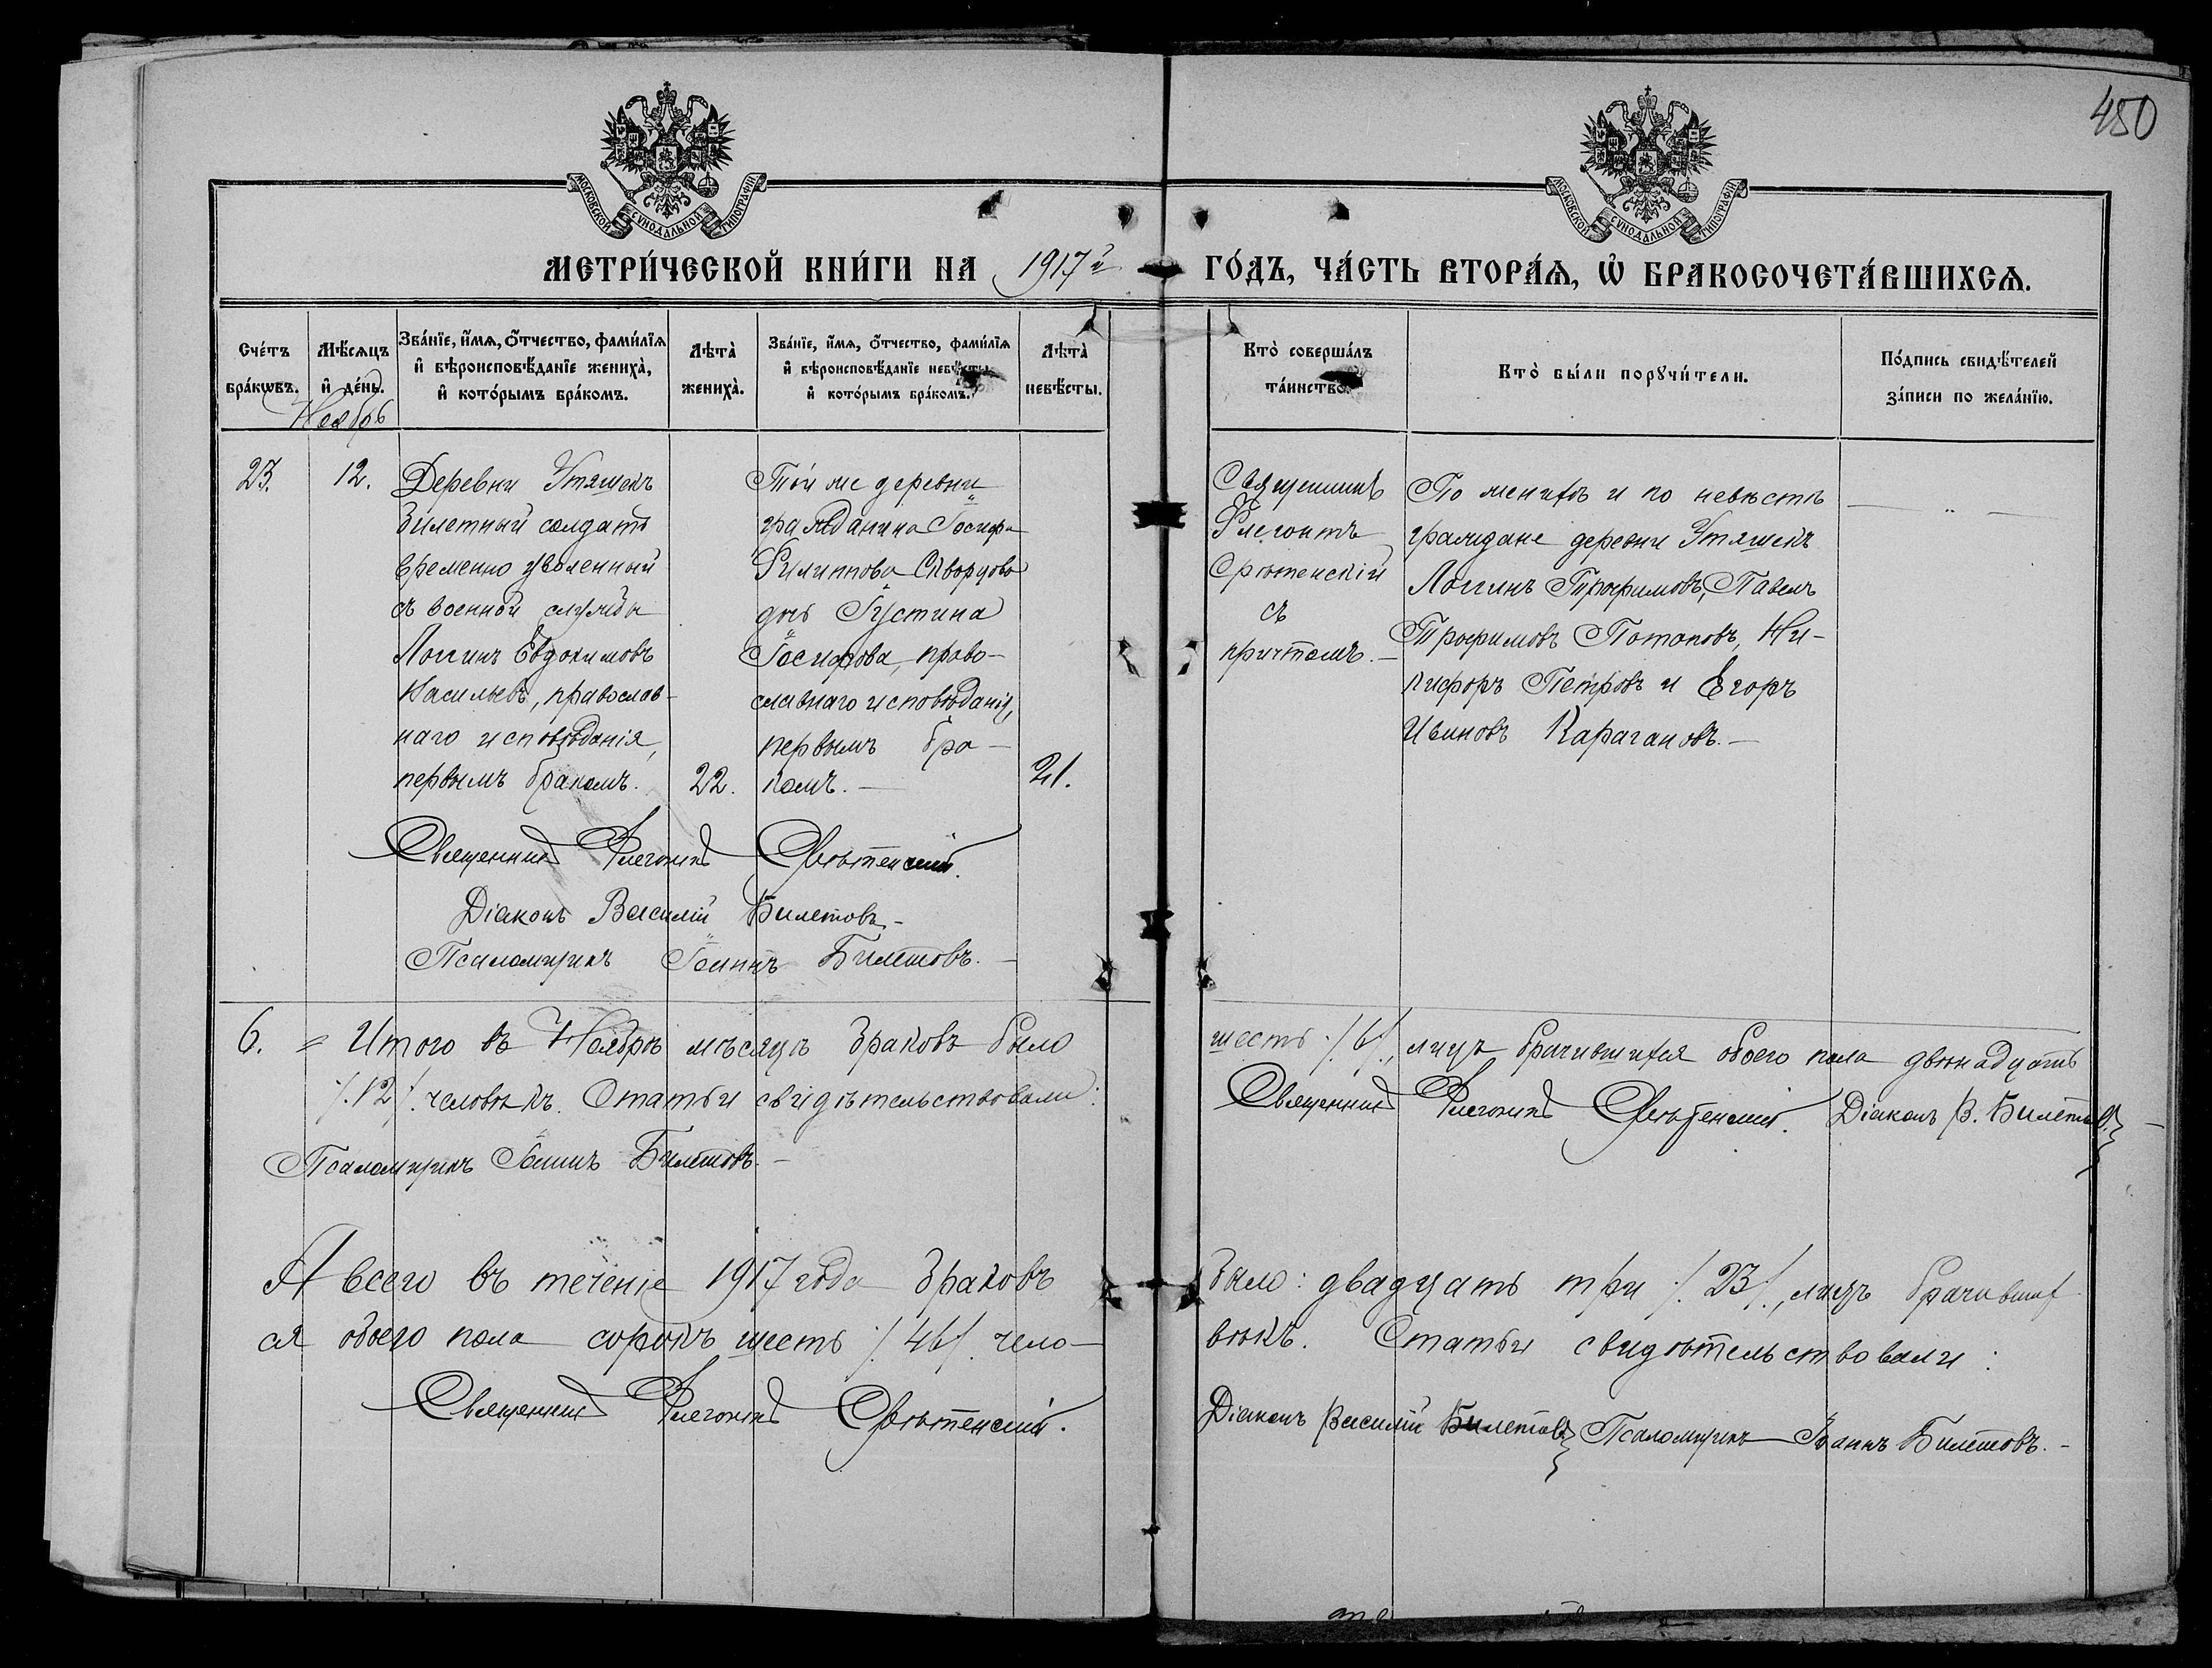 450
МОСКОВСКОЙ СѴНОДАЛЬНОЙ ТИПОГРАФІИ
МОСКОВСКОЙ СѴНОДАЛЬНОЙ ТИПОГРАФІИ
МЕТРИ́ЧЕСКОЙ КНИ́ГИ НА 1917й ГО́ДЪ, ЧА́СТЬ ВТОРА́Ѧ, Ѽ БРАКОСОЧЕТА́ВШИХСѦ.
Сче́тъ
бра́кѡвъ.
Мѣ́сѧцъ
и҆ де́нь.
Ноябрь
Зва́нїе, и҆́мѧ, ѻ҆́тчество, фами́лїѧ
и҆ вѣроисповѣ́данїе жениха̀,
и҆ кото́рымъ бра́комъ.
Лѣта̀
жениха̀.
Зва́нїе, и҆́мѧ, ѻ҆́тчество, фами́лїѧ
и҆ вѣроисповѣ́данїе невѣ́сты,
и҆ кото́рымъ бра́комъ.
Лѣта̀
невѣ́сты.
Кто̀ соверша́лъ
та́инство.
Кто̀ бы́ли порꙋчи́тели.
По́дпись свидѣ́телей
за́писи по жела́нїю.
23.
12.
Деревни Утяшекъ
билетный солдатъ
временно уволенный
съ военной службы
Логинъ Евдокимовъ
Насильевъ, православ-
наго исповѣданія,
первымъ бракомъ.
22.
Той же деревни
гражданина Іосифа
Филиппова Скворцова
дочь Іустина
Іосифова, право-
славнаго исповѣданія,
первымъ бра-
комъ. —
21.
Священникъ
Флегонтъ
Срѣтенскій
съ
причтомъ. —
По женихѣ и по невѣстѣ
граждане деревни Утяшекъ
Логинъ Трофимовъ, Павелъ
Трофимовъ Потаповъ, Ни-
кифоръ Петровъ и Егоръ
Ивановъ Карагановъ. —
— „ —
Священникъ Флегонтъ Срѣтенскій.
Діаконъ Василій Билетовъ. –
Псаломщикъ Іоаннъ Билетовъ. –
6. = Итого въ Ноябрѣ мѣсяцѣ браковъ было шесть /6/, лицъ брачившихся обоего пола двѣнадцать
/.12/. человѣкъ. Статьи свидѣтельствовали: Священникъ Флегонтъ Срѣтенскій. Діаконъ В. Билетовъ. –
Псаломщикъ Іоаннъ Билетовъ. –
А всего въ теченіе 1917 года браковъ было: двадцать три /.23/., лицъ брачивших
ся обоего пола сорокъ шесть /.46/. чело- вѣкъ. Статьи свидѣтельствовали:
Священникъ Флегонтъ Срѣтенскій. Діаконъ Василій Билетовъ Псаломщикъ Іоаннъ Билетовъ. –